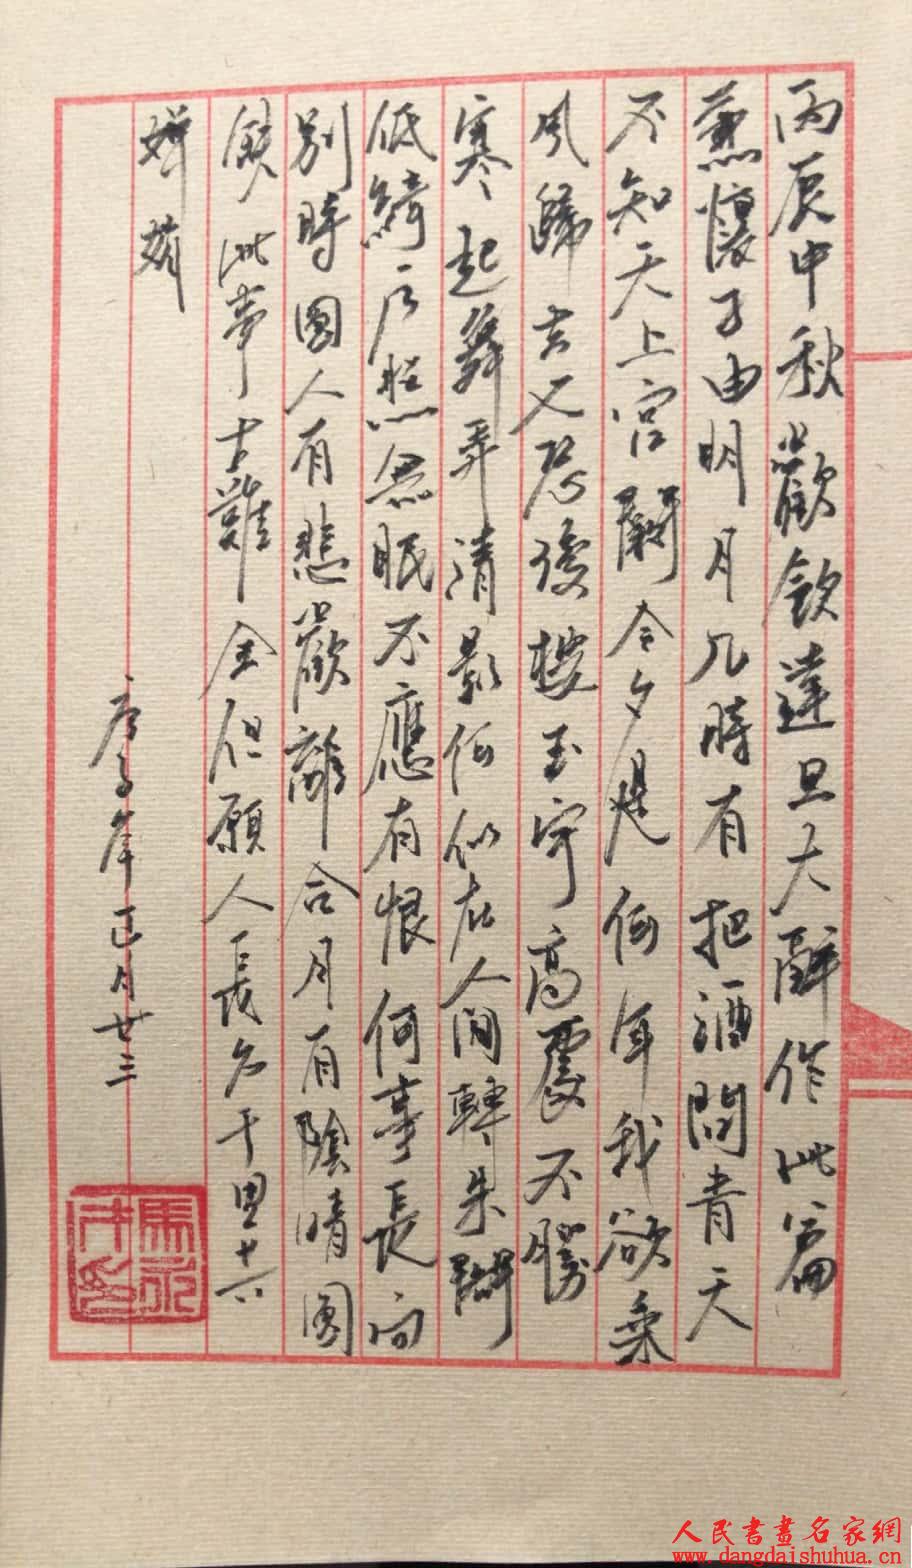 丙辰中秋歡飲達旦大醉作此篇
兼懷子由明月几時有把酒問青天
不知天上宮闕今夕是何年我欲乘
風歸去又恐瓊樓玉宇高處不勝
寒起舞弄清影何似在人間轉朱閣
低綺户照無眠不應有恨何事長向
別時圓人有悲歡離合月有陰晴圓
缺此事古難全但願人長久千里共
嬋娟
庚子年正月廿三
馬永
印
人民書畫名家網
www.dangdaishuhua.cn